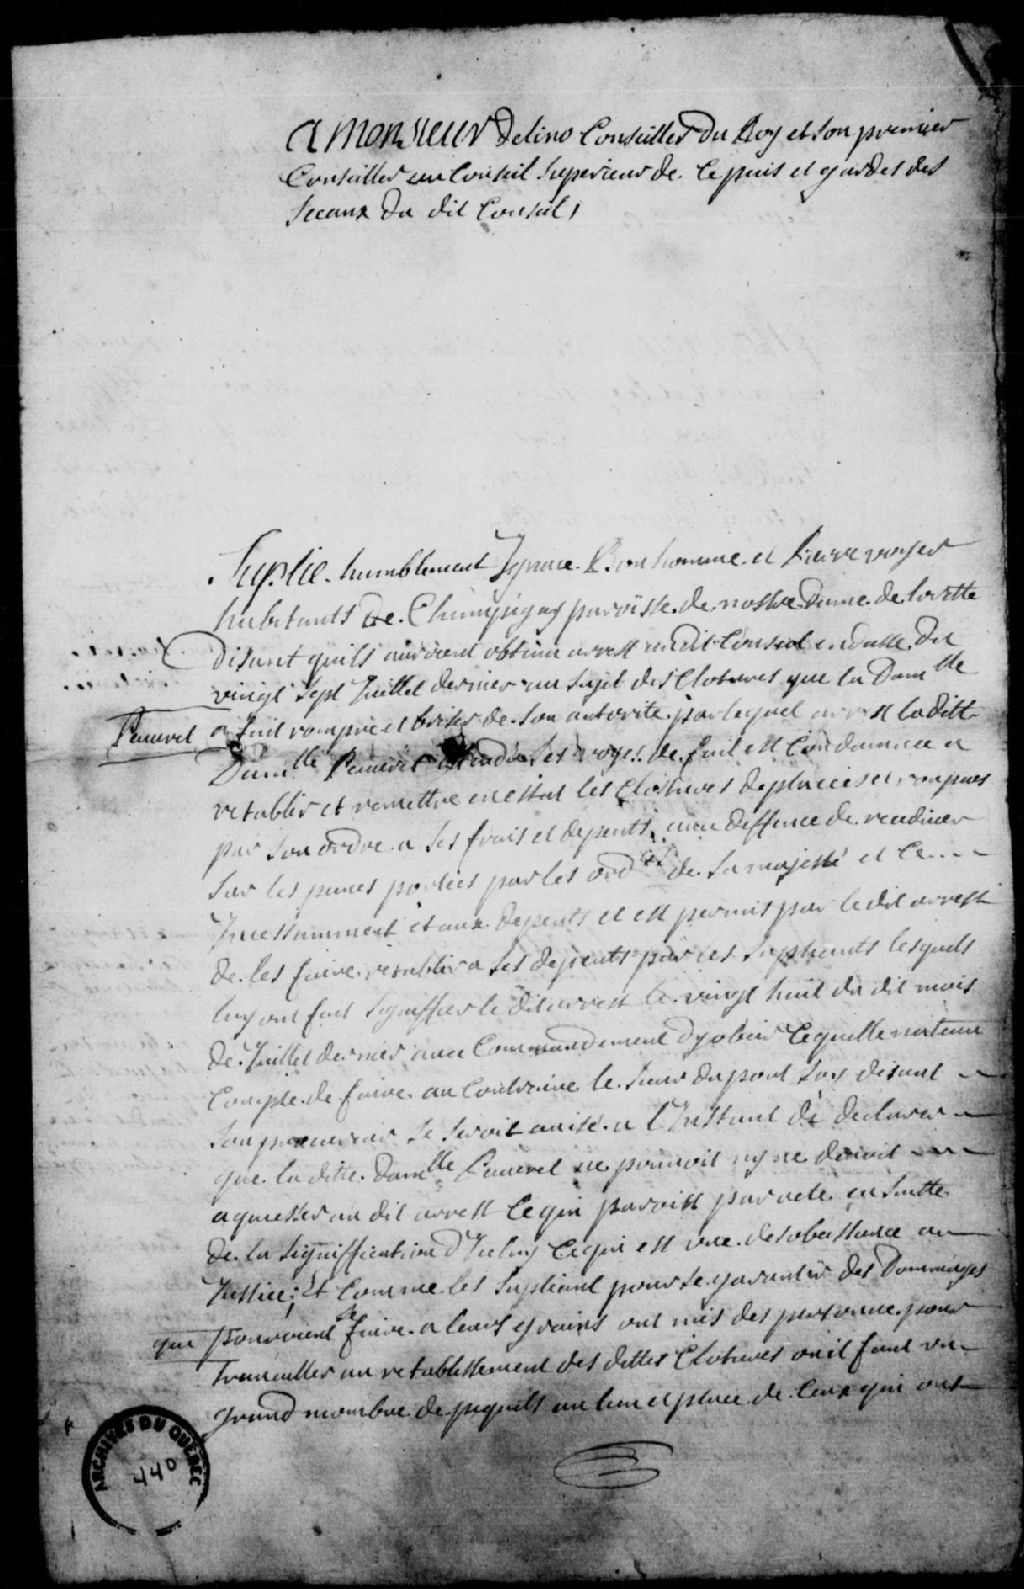 A Monsieur Delino Conseiller du Roy et son premier
Conseiller au Conseil Superieur de ce païs et gardes des
Sceaux du dit Conseil,
Suplie humblement Ignace Bonhomme et Pierre voyer
habitants de Champigny paroisse de nostre Dame de lorette
Disant quils auroient obtenu arrest au dit Conseil en datte du
vingt Sept Juillet dernier au Sujet des Clotures que la Damlle
Peuvret a fait rompre et briser de Son autorité par lequel arrest la ditte
Damlle Peuvret Ses voyes de fait est Condamnée a
retablir et remettre en estat les Clotures deplacées et rompues
par Son ordre a Ses frais et depents, avec deffence de recidiver
Sur les peines portées par les ordces de Sa majesté et Ce
Incessamment et aux depents et est permis par le dit arrest
de les faire retablir a Ses depents par les Supliants lesquels
luy ont fait Signiffier le dit arrest le vingt huit du dit mois
de Juillet dernier avec Commandement dy obeir Lequelle na tenu
Compte de faire au Contraire le Sieur dupont Soy disant
Son procureur Se Seroit avisé a l'Instant de declarer
que la ditte Damlle Peuvret ne pouvoit ny ne devoit
aquiesser au dit arrest Ce qui paroist par acte en Suitte
de la Signiffication d'Iceluy Ce qui est une desobeissance a
Justice; Et Comme les Supliant pour Se garantir des Dommages
qui pouroient Se faire a leurs grains ont mis des personne pour
travailler au retablissement des dittes Clotures ou il faut un
grand nombre de piquets au lieu et place de Ceux qui ont
ARCHIVES DU QUÉBEC
440